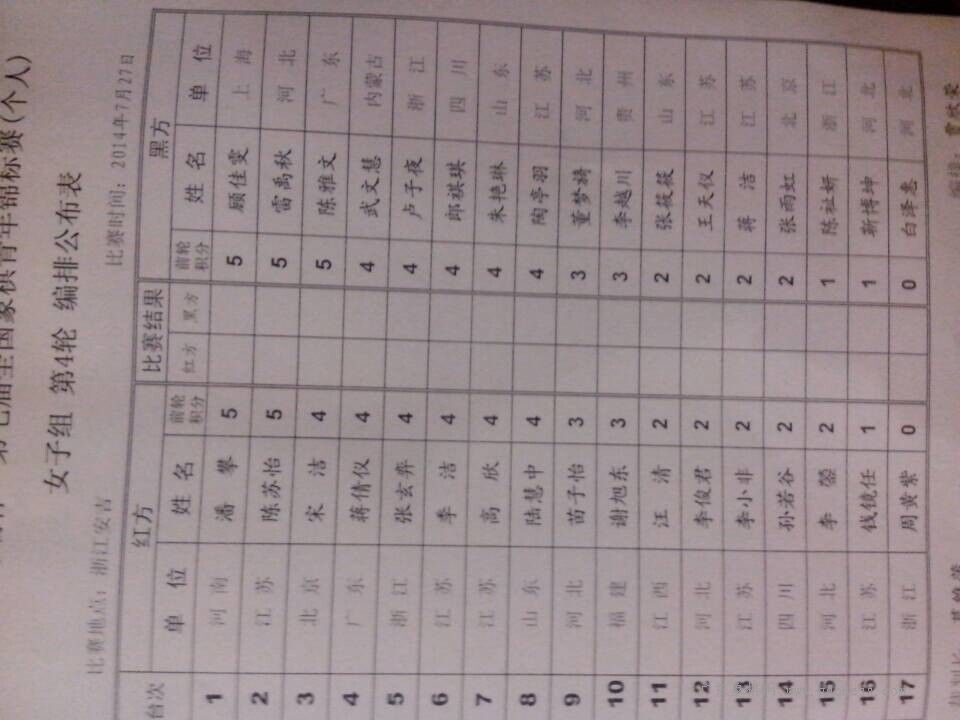 届全国象棋青年锦标赛(个人)
女子组 第4轮 编排公布表
比赛地点：浙江安吉 比赛时间：2014年7月27日
台次 红方 比赛结果 黑方
单位 姓名 前轮积分 红方 黑方 前轮积分 姓名 单位
1 河南 潘攀 5 5 顾佳雯 上海
2 江苏 陈苏怡 5 5 雷禹秋 河北
3 北京 宋洁 4 5 陈雅文 广东
4 广东 蒋倩仪 4 4 武文慧 内蒙古
5 浙江 张玄弈 4 4 卢子夜 浙江
6 江苏 李洁 4 4 郎祺琪 四川
7 江苏 高欣 4 4 朱艳琳 山东
8 山东 陆慧中 4 4 陶亭羽 江苏
9 河北 苗子怡 3 3 董梦 河北
10 福建 谢旭东 3 3 李越川 贵州
11 江西 汪清 2 2 张筱筱 山东
12 河北 李俊君 2 2 王天仪 江苏
13 江苏 李小非 2 2 蒋洁 江苏
14 四川 孙若谷 2 2 张雨虹 北京
15 河北 李 2 1 陈祉妍 浙江
16 江苏 钱镜任 1 1 靳博坤 河北
17 浙江 周黄紫 0 0 白泽惠 河北